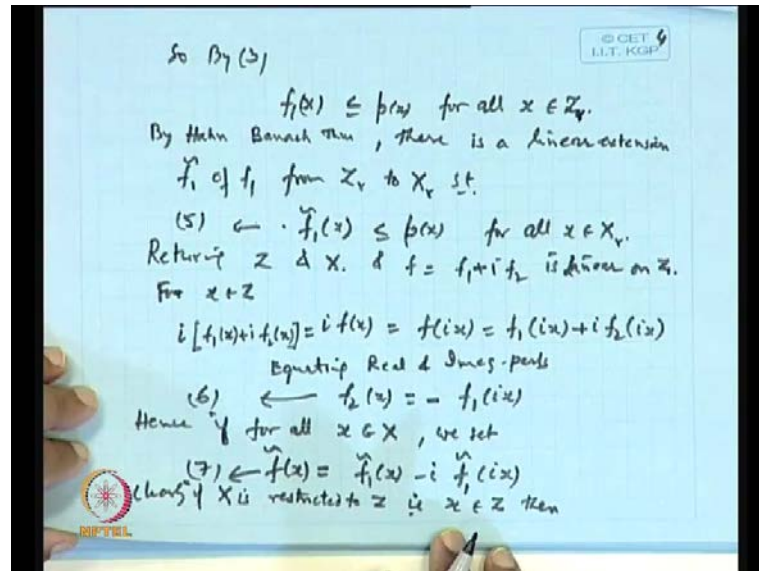 © CET
I.I.T. KGP
4
So By (3)
f₁(x) ≤ p(x) for all x ∈ Zᵣ.
By Hahn Banach Thm, there is a linear extension
f̃₁ of f₁ from Zᵣ to Xᵣ s.t.
(5) ← f̃₁(x) ≤ p(x) for all x ∈ Xᵣ.
Returing Z & X. & f = f₁ + i f₂ is linear on Z.
For x ∈ Z
i [f₁(x) + i f₂(x)] = i f(x) = f(ix) = f₁(ix) + i f₂(ix)
Equating Real & Imag. parts
(6) ← f₂(x) = - f₁(ix)
Hence if for all x ∈ X, we set
(7) ← f̃(x) = f̃₁(x) - i f̃₁(ix)
Clearly if X is restricted to Z ie x ∈ Z then
NPTEL